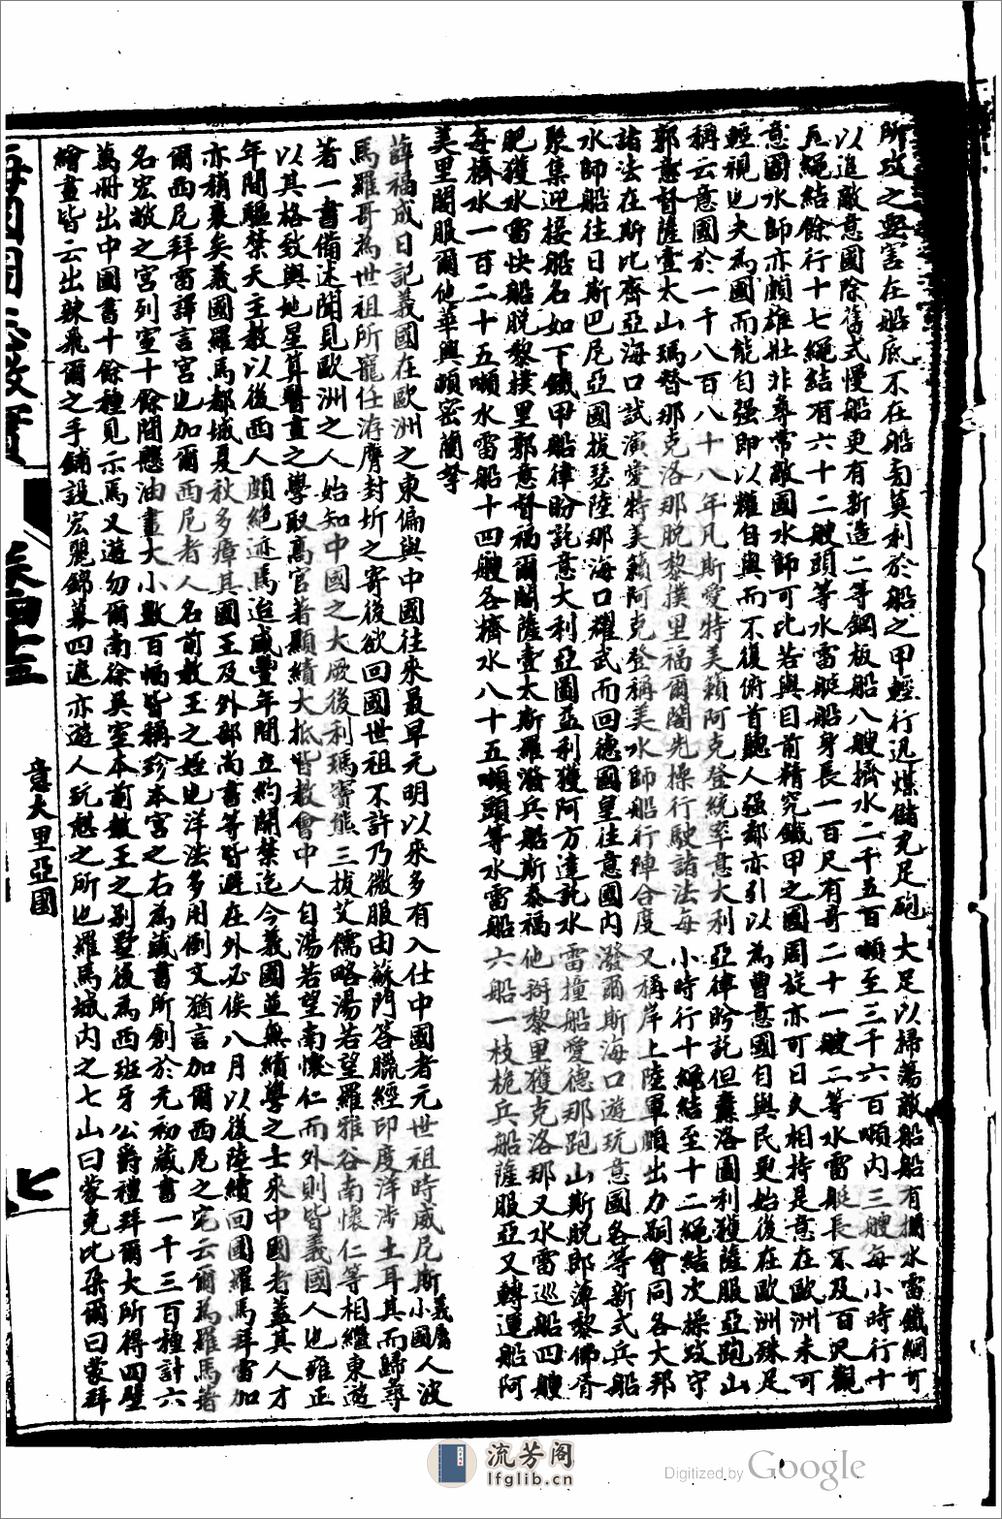 所攻之要害在船底不在船面莫利於船之甲輕行迅煤儲充足砲大足以掃蕩敵船船有攔水雷鐵網可
以追敵意國除舊式慢船更有新造二等鋼板船八艘擠水二千五百噸至三千六百噸內三艘每小時行十
五繩結餘行十七繩結有六十二艘頭等水雷艇船身長一百尺有哥二十一艘二等水雷艇長不及百尺觀
意國水師亦頗雄壯非尋常敵國水師可比若與目前精究鐵甲之國周旋亦可日久相持是意在歐洲未可
輕視也夫為國而能自强即以權自與而不復俯首聽人强鄰亦引以為曹意國自與民更始後在歐洲殊足
稱云意國於一千八百八十八年凡斯愛特美籟阿克登統率意大利亞律盼託但鑫洛圖利獲薩服亞跑山
郭意督薩壹太山瑪督那克洛那脫黎撲里福爾闊先操行駛諸法每小時行十繩結至十二繩結次操攻守
諸法在斯比齊亞海口試演愛特美籟阿克登稱美水師船行陣合度又稱岸上陸軍頗出力嗣會同各大邦
水師船往日斯巴尼亞國拔瑟陸那海口耀武而回德國皇往意國內潑爾斯海口遊玩意國各等新式兵船
聚集迎接船名如下鐵甲船律盼託意大利亞圖亞利獲阿方達託水雷撞船愛德那跑山斯脫郎薄黎佛胥
肥獲水雷快船脫黎撲里郭意督福爾闊薩壹太斯羅潑兵船斯泰福他掰黎里獲克洛那又水雷巡船四艘
每擠水一百二十五噸水雷船十四艘各擠水八十五噸頭等水雷船六船一枝桅兵船薩服亞又轉運船阿
美里閣服爾他華與頗密蘭拏
薛福成日記義國在歐洲之東偏與中國往來最早元明以來多有入仕中國者元世祖時威尼斯義屬小國人波
馬羅哥為世祖所寵任洊膺封圻之寄後欲回國世祖不許乃微服由蘇門答臘經印度洋涉土耳其而歸尋
著一書備述聞見歐洲之人始知中國之大厥後利瑪竇熊三拔艾儒略湯若望羅雅谷南懷仁等相繼東遊
以其格致輿地星算醫畫之學取高官著顯績大抵皆教會中人自湯若望南懷仁而外則皆義國人也雍正
年間驅禁天主教以後西人頗絕迹焉迨咸豐年間立約開禁迄今義國並無績學之士來中國者蓋其人才
亦稍衰矣義國羅馬都城夏秋多瘴其國王及外部尚書等皆避在外必俟八月以後陸續回國羅馬拜雷加
爾西尼拜雷譯言宮也加爾西尼者人名前教王之姪也洋法多用倒文猶言加爾西尼之宅云爾為羅馬著
名宏敞之宮列室十餘間懸油畫大小數百幅皆稱珍本宮之右為藏書所創於元初藏書一千三百種計六
萬冊出中國書十餘種見示焉又遊勿爾南徐英室本前教王之別墅後為西班牙公爵禮拜爾大所得四壁
繪畫皆云出辣飛爾之手鋪設宏麗錦幕四遮亦遊人玩憩之所也羅馬城內之七山曰蒙克比朶爾曰蒙拜
意大里亞國
七
流芳阁
lfglib.cn
Digitized by Google